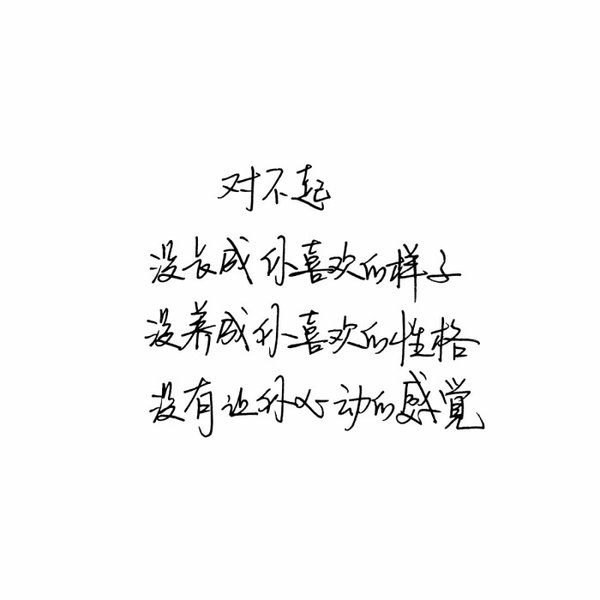 对不起
没长成你喜欢的样子
没养成你喜欢的性格
没有让你心动的感覺